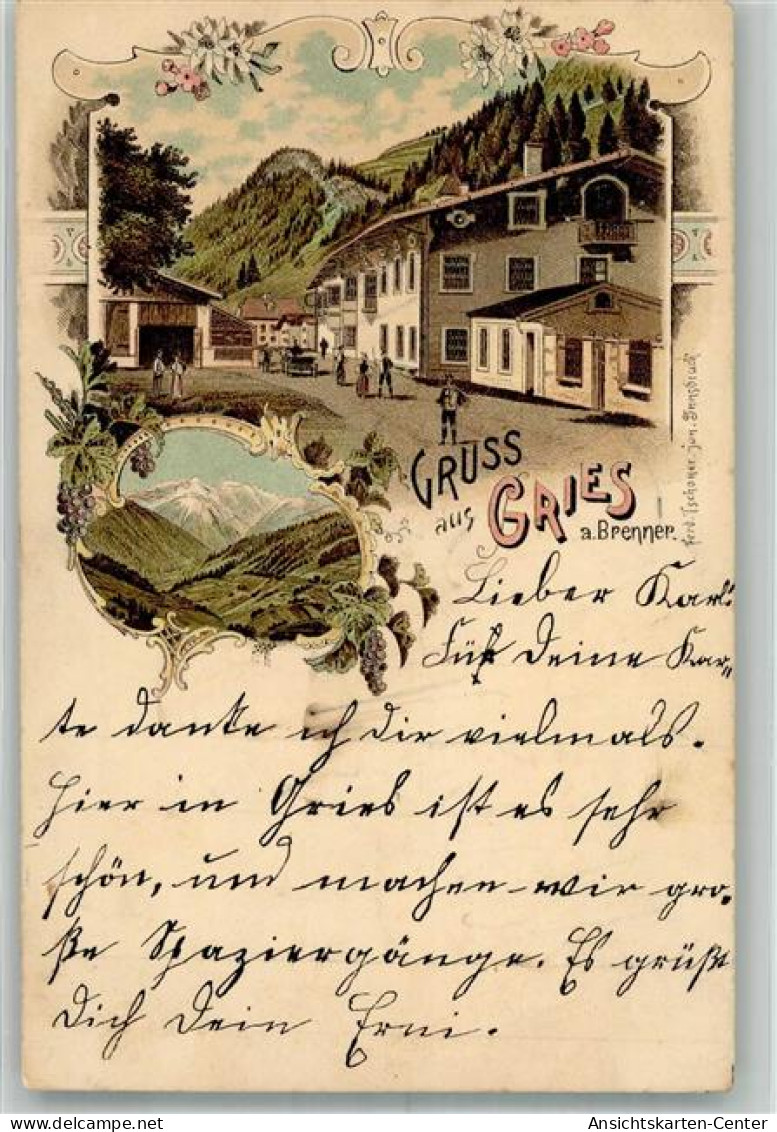 GRUSS
aus GRIES
a. Brenner.
Ferd. Tschoner jun. Innsbruck
Lieber Karl!
Für Deine Kar„
te danke ich dir vielmals.
Hier in Gries ist es sehr
schön, und machen wir gro„
ße Spaziergänge. Es grüßt
Dich Dein Erni.
Ansichtskarten-Center